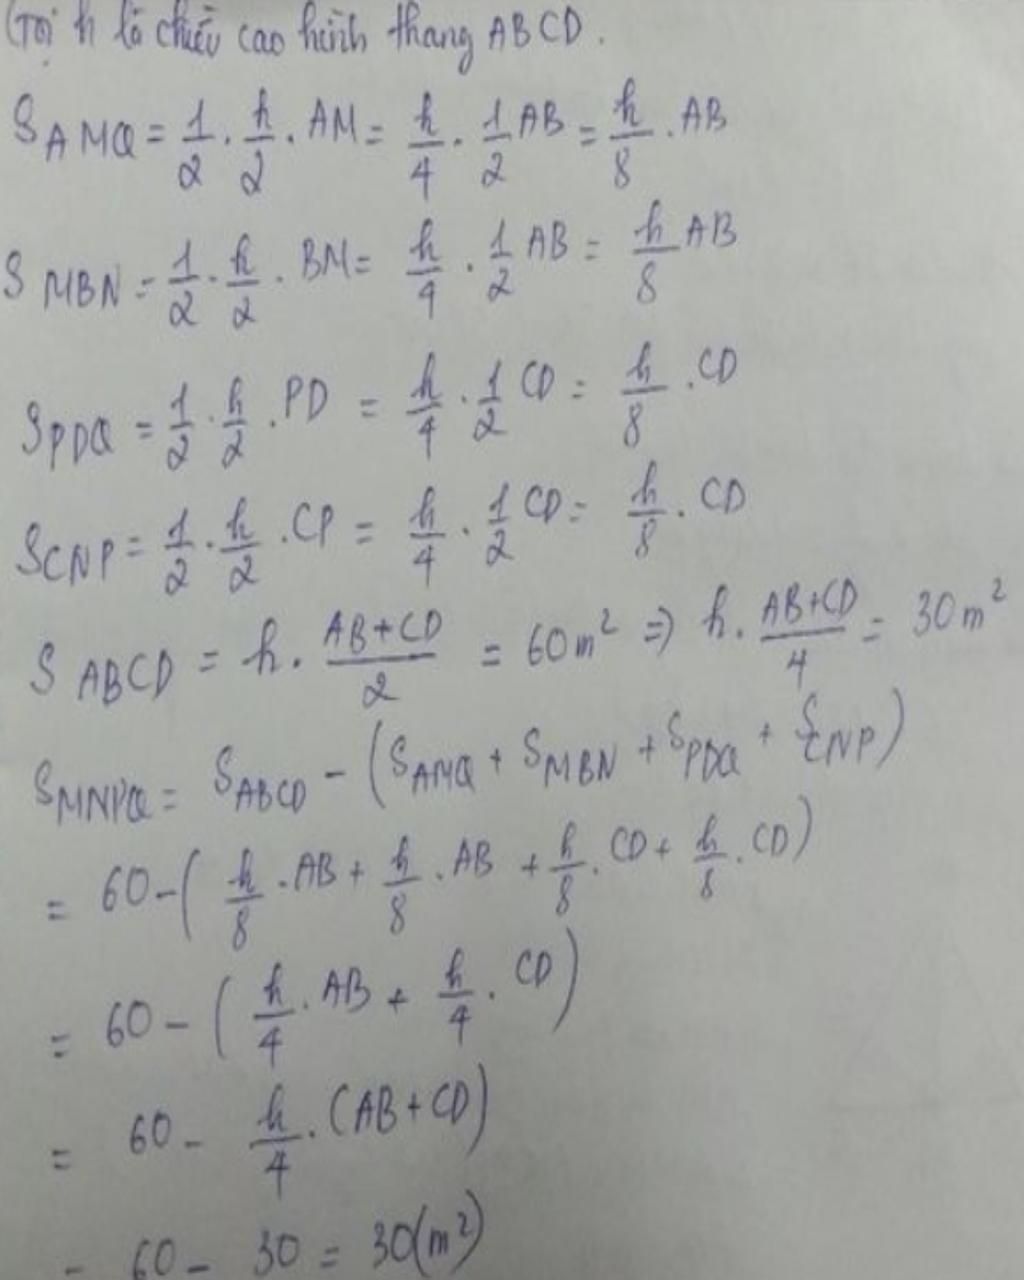 Gọi h là chiều cao hình thang ABCD.
S AMQ = 1/2 . h/2 . AM = h/4 . 1/2 AB = h/8 . AB
S MBN = 1/2 . h/2 . BM = h/4 . 1/2 AB = h/8 AB
S PDQ = 1/2 . h/2 . PD = h/4 . 1/2 CD = h/8 . CD
S CNP = 1/2 . h/2 . CP = h/4 . 1/2 CD = h/8 . CD
S ABCD = h . (AB+CD)/2 = 60m² => h . (AB+CD)/4 = 30m²
S MNPQ = S ABCD - (S AMQ + S MBN + S PDQ + S CNP)
= 60 - (h/8 . AB + h/8 . AB + h/8 . CD + h/8 . CD)
= 60 - (h/4 . AB + h/4 . CD)
= 60 - h/4 . (AB + CD)
= 60 - 30 = 30(m²)